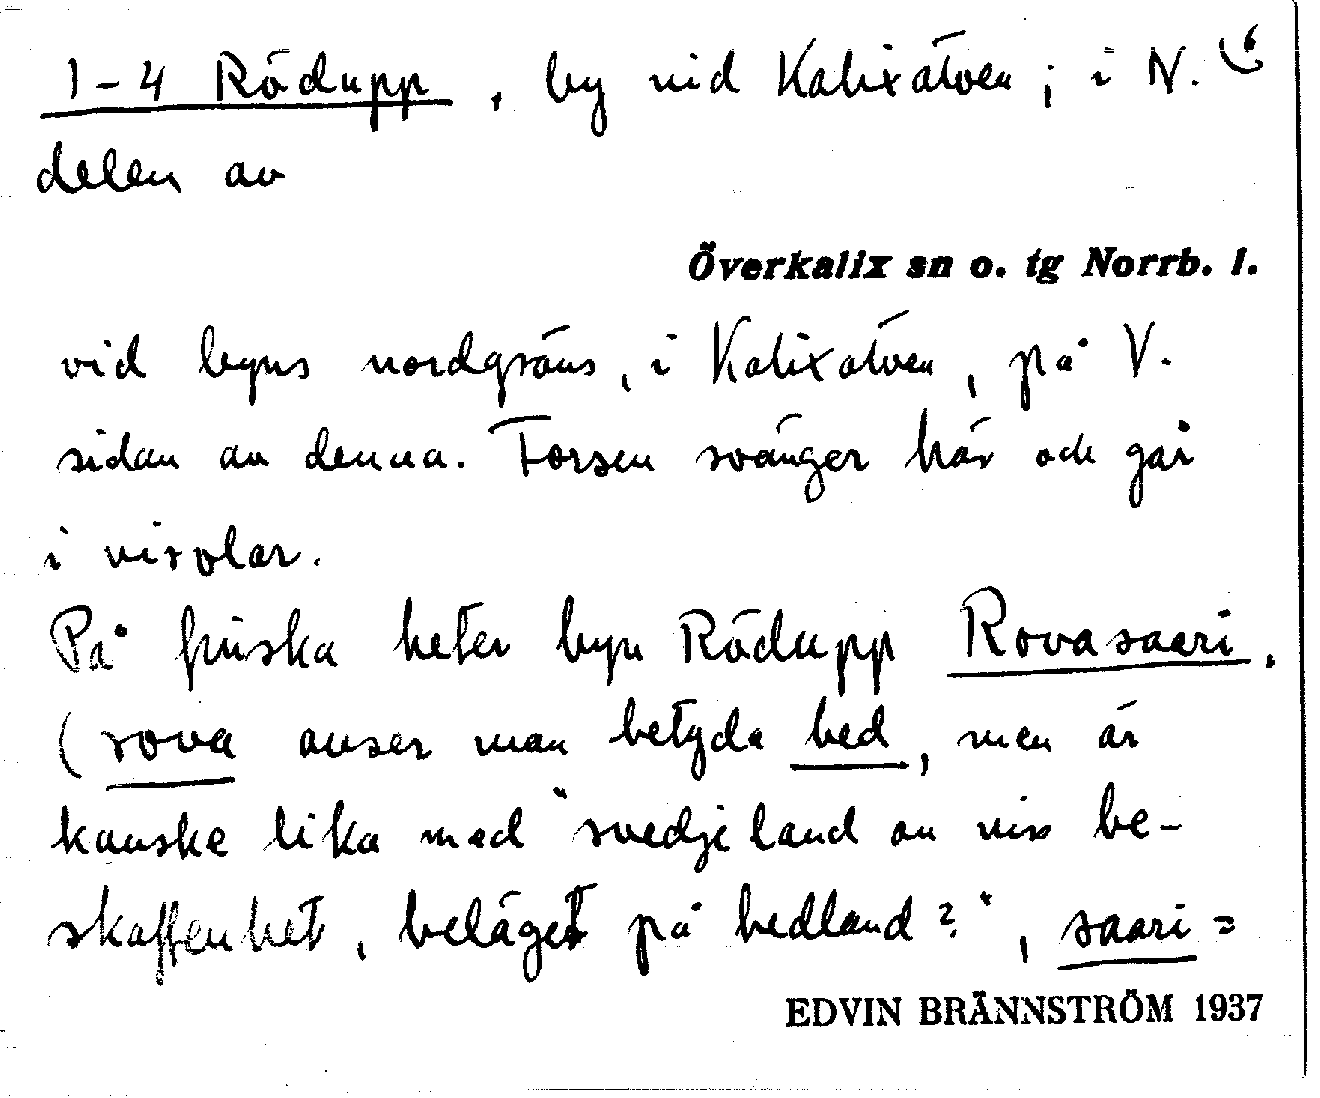 1-4 Rödupp, by vid Kalixälven; i N. 6
delen av
Överkalix sn o. tg Norrb. l.
vid byns nordgräns, i Kalixälven, på V.
sidan av denna. Forsen svänger här och går
i virvlar.
På finska heter byn Rödupp Rovasaari.
(rova anser man betyda hed, men är
kanske lika med "svedjeland av viss be-
skaffenhet, beläget på hedland?", saari =
EDVIN BRÄNNSTRÖM 1937